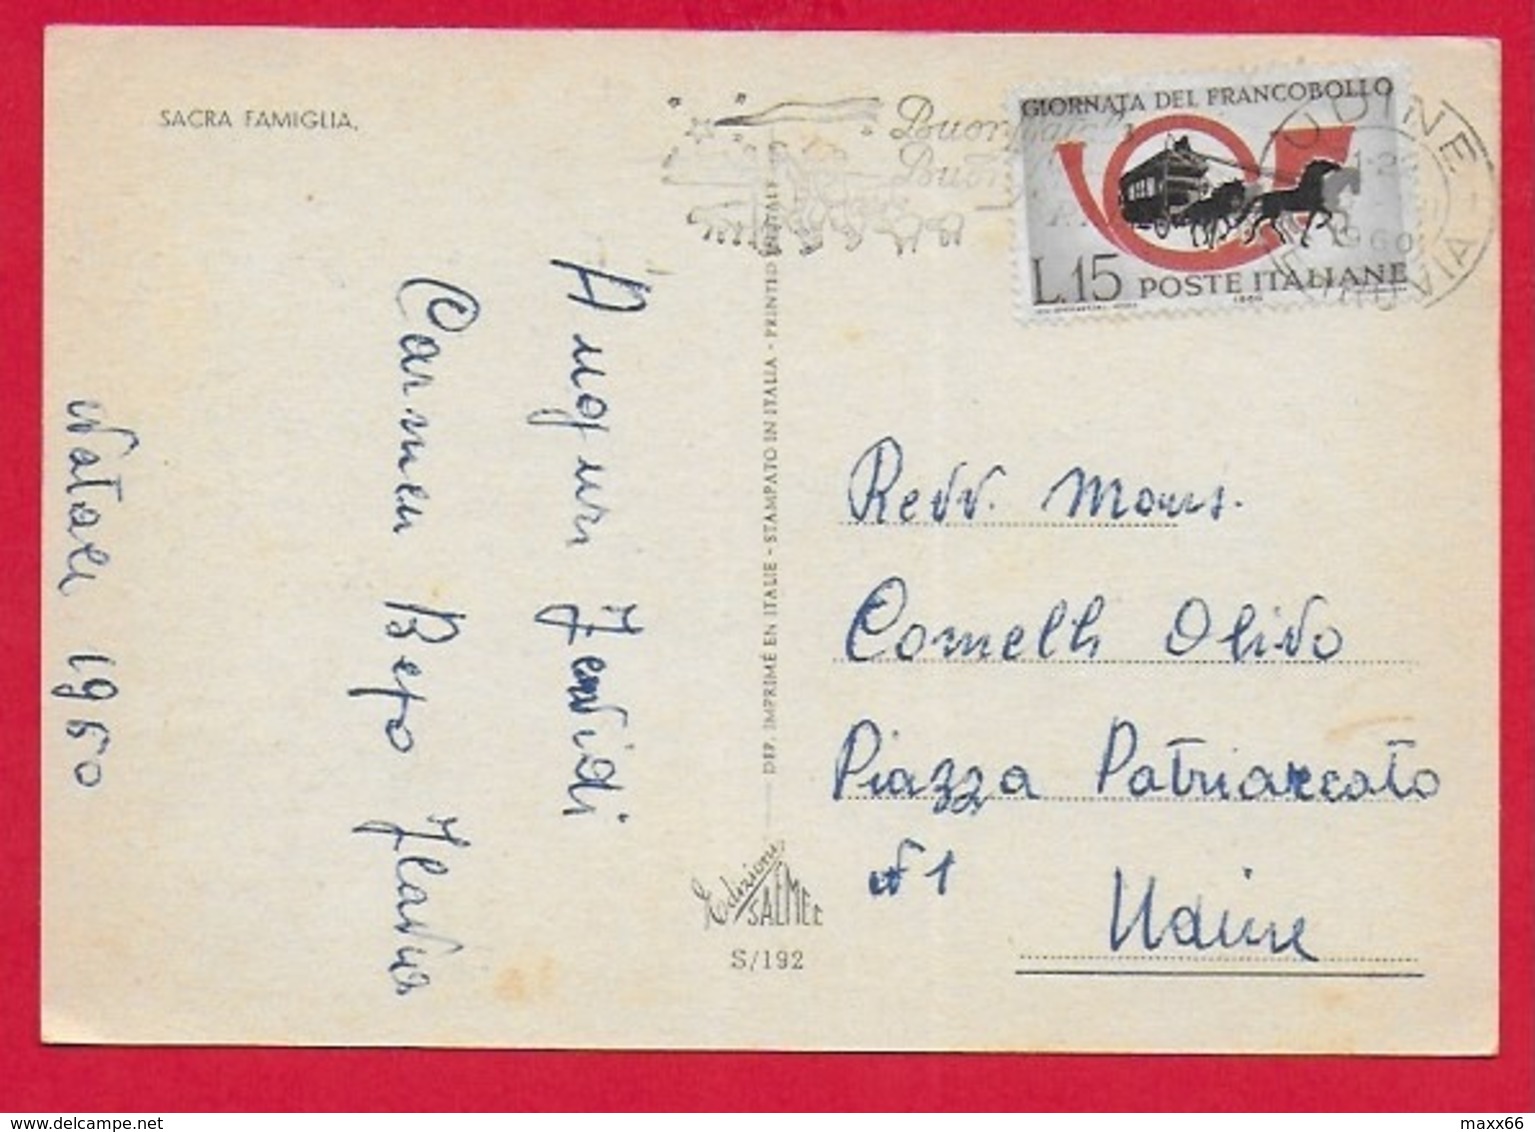 SACRA FAMIGLIA.
Buon Natale
Buon
GIORNATA DEL FRANCOBOLLO
L.15 POSTE ITALIANE
1960
UDINE
12
1960
FERROVIA
Auguri Fervidi
Carmen Bepo Flavia
Natale 1960
DEP. IMPRIMÉ EN ITALIE - STAMPATO IN ITALIA - PRINTED IN ITALY
Edizioni
SAEMEC
S/192
Revv. Mons.
Comelli Olivo
Piazza Patriarcato
N 1
Udine
delcampe.net
maxx66